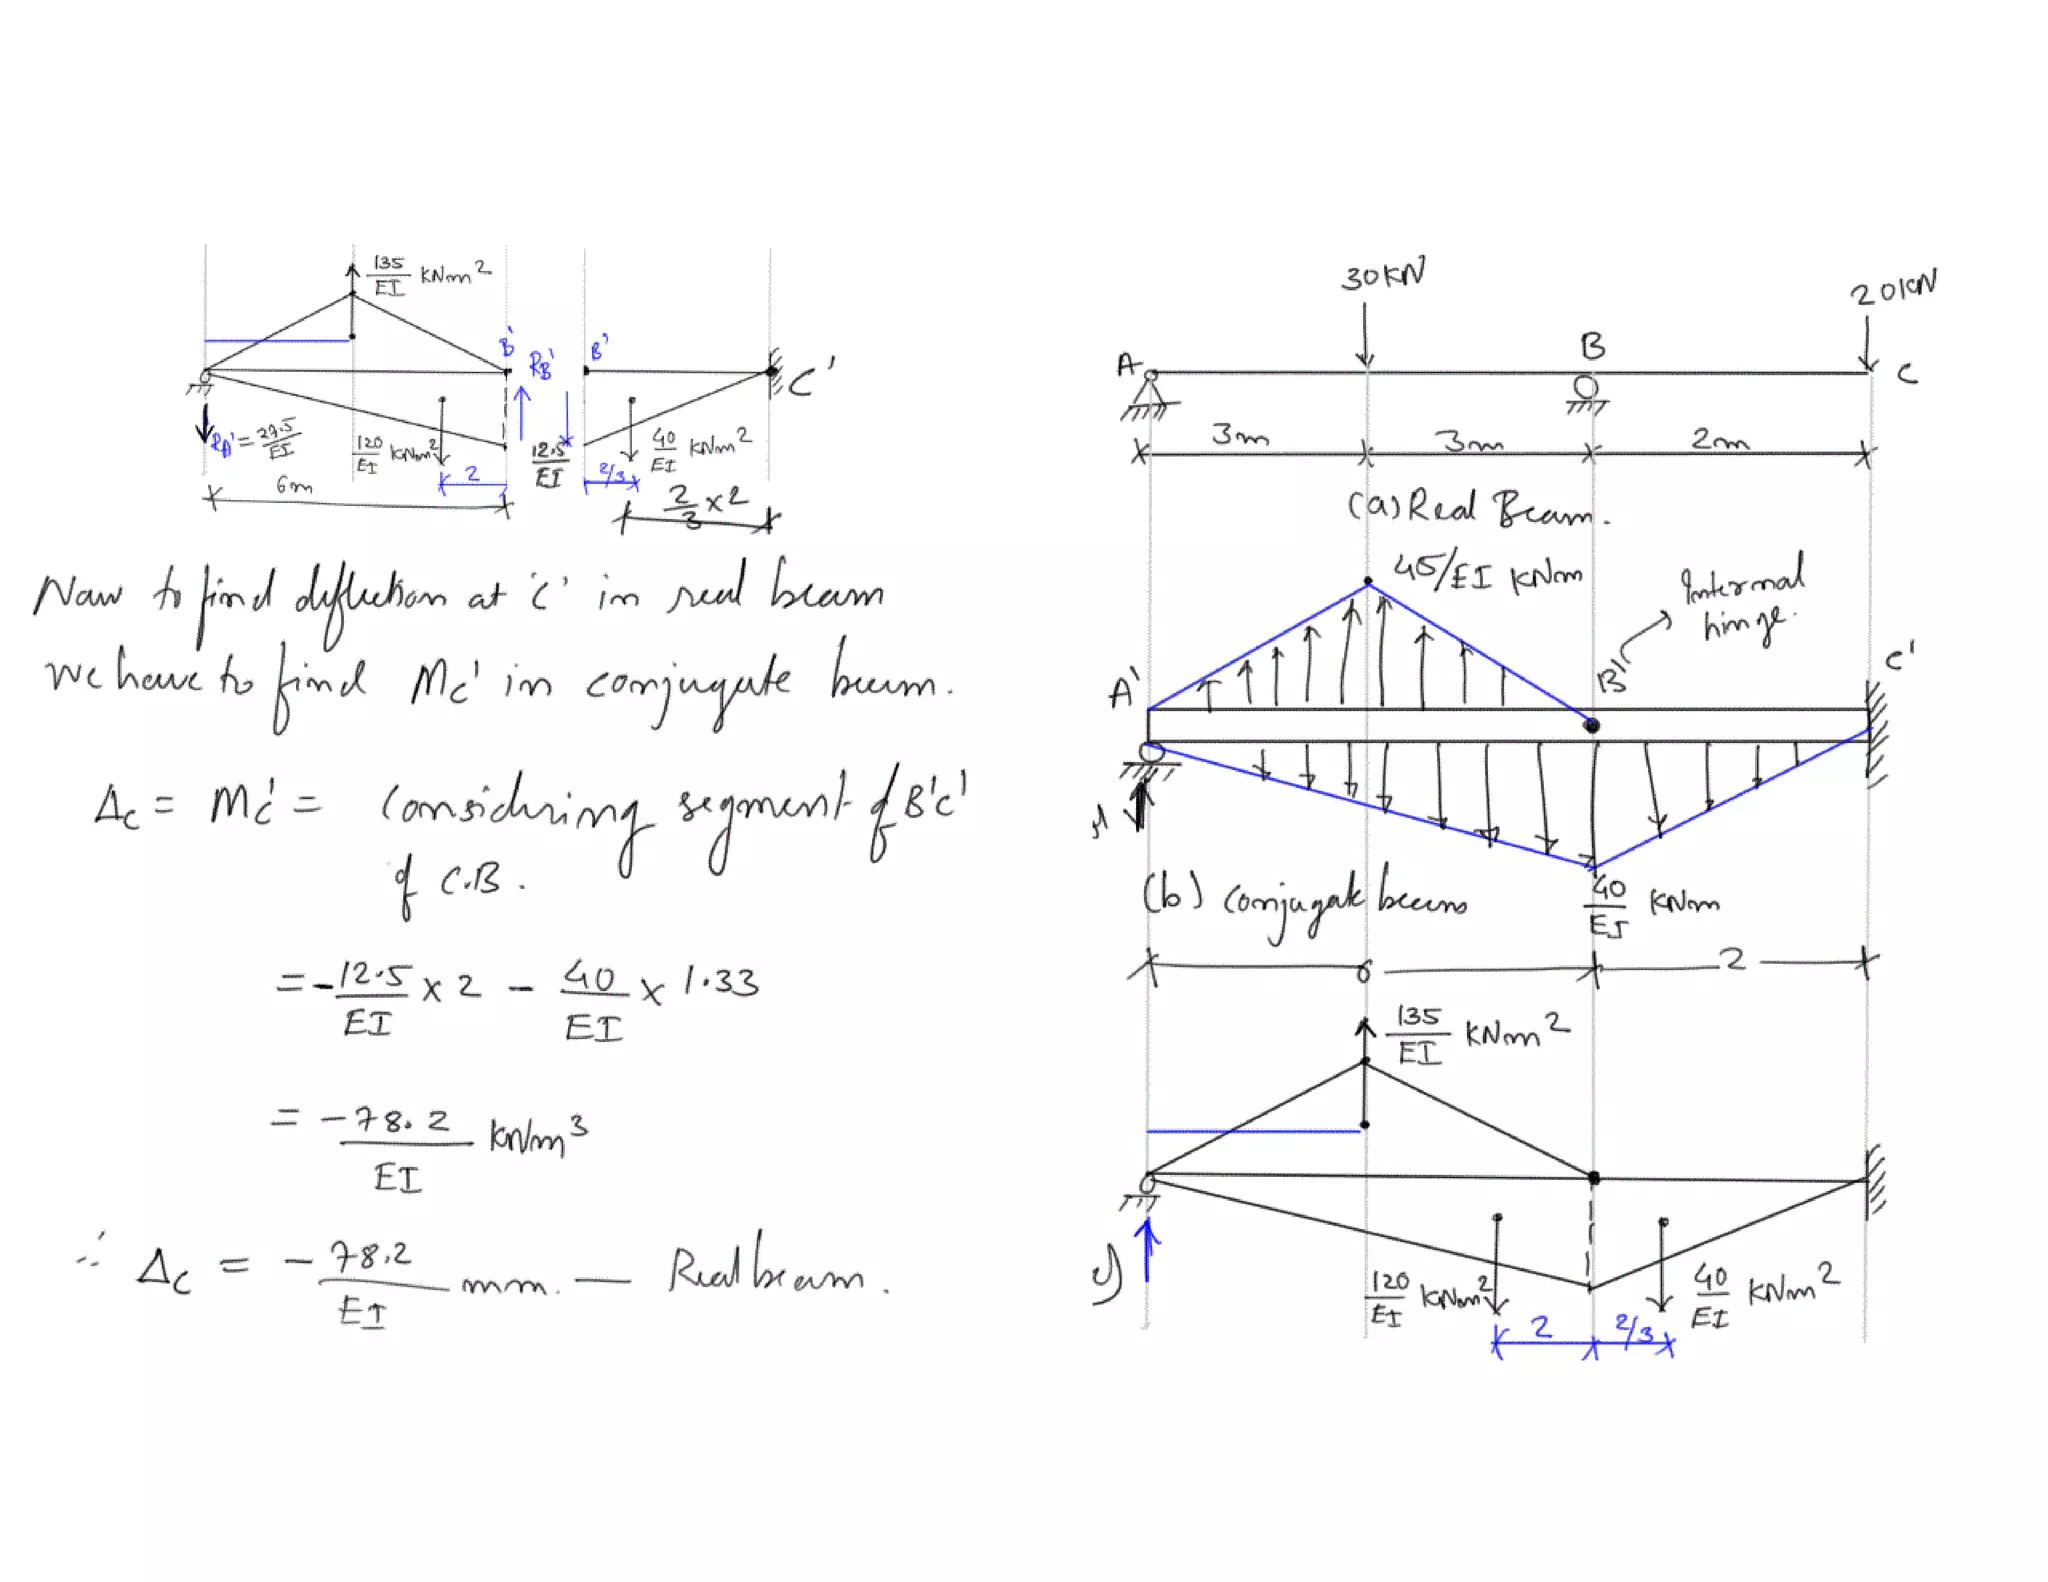 135/EI KNm²
B' RB' B'
C'
RA' = 27.5/EI
120/EI KNm²
12.5/EI
40/EI KNm²
2
2/3
6m
2/3 x 2
Now to find deflection at 'C' in real beam
we have to find Mc' in conjugate beam.
Δc = Mc' = Considering segment of B'C'
of C.B.
= -12.5/EI x 2 - 40/EI x 1.33
= -78.2/EI kNm³
∴ Δc = -78.2/EI mm. — Real beam.
30KN
20KN
A B C
3m 3m 2m
(a) Real Beam.
45/EI KNm
Internal
hinge.
A' B' C'
(b) conjugate beam
40/EI KNm
6 2
135/EI KNm²
c)
120/EI KNm²
40/EI KNm²
2 2/3